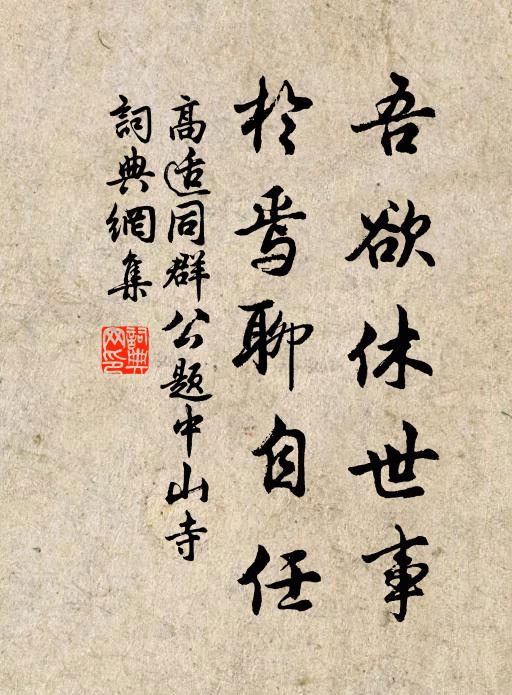 吾欲休世事
於焉聊自任
高适同群公题中山寺
詞典網集
詞典
网印